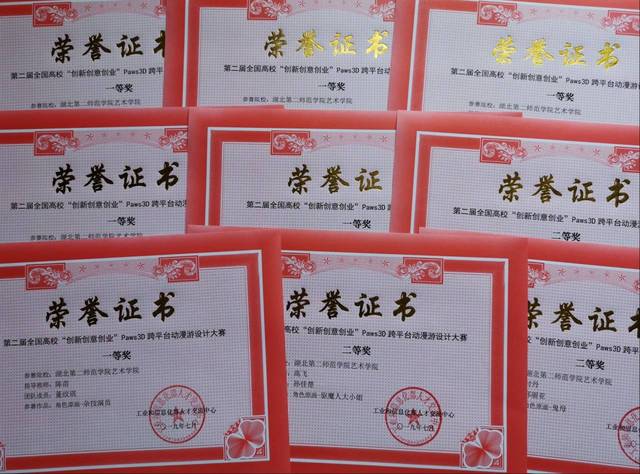 荣誉证书
第二届全国高校“创新创意创业”Paws3D 跨平台动漫
一等奖
参赛院校：湖北第二师范学院艺术学院
荣誉证书
第二届全国高校“创新创意创业”Paws3D 跨平台动漫游设
一等奖
参赛院校：湖北第二师范学院艺术学院
荣誉证书
第二届全国高校“创新创意创业”Paws3D 跨平台动漫游设计大赛
一等奖
参赛院校：湖北第二师范学院艺术学院
荣誉证书
第二届全国高校“创新创意创业”Paws3D 跨平台动漫
一等奖
参赛院校：湖北第二师范学院艺术学院
荣誉证书
第二届全国高校“创新创意创业”Paws3D 跨平台动漫游
一等奖
参赛院校：湖北第二师范学院艺术学院
荣誉证书
第二届全国高校“创新创意创业”Paws3D 跨平台动漫游设计大
二等奖
荣誉证书
第二届全国高校“创新创意创业”Paws3D 跨平台动漫游设计大赛
一等奖
参赛院校：湖北第二师范学院艺术学院
指导教师：陈蓓
团队成员：
参赛作品：角色原画-杂技演员
工业和信息化部人才交流中心
二〇一九年七月
荣誉证书
高校“创新创意创业”Paws3D 跨平台动漫游设计大赛
二等奖
湖北第二师范学院艺术学院
高飞
孙佳楚
角色原画-驱魔人大小姐
工业和信息化部人才交流中心
二〇一九年七月
证书
“创新创意创业”Paws3D 跨平台
二等奖
第二师范学院艺术学院
角色原画-鬼母